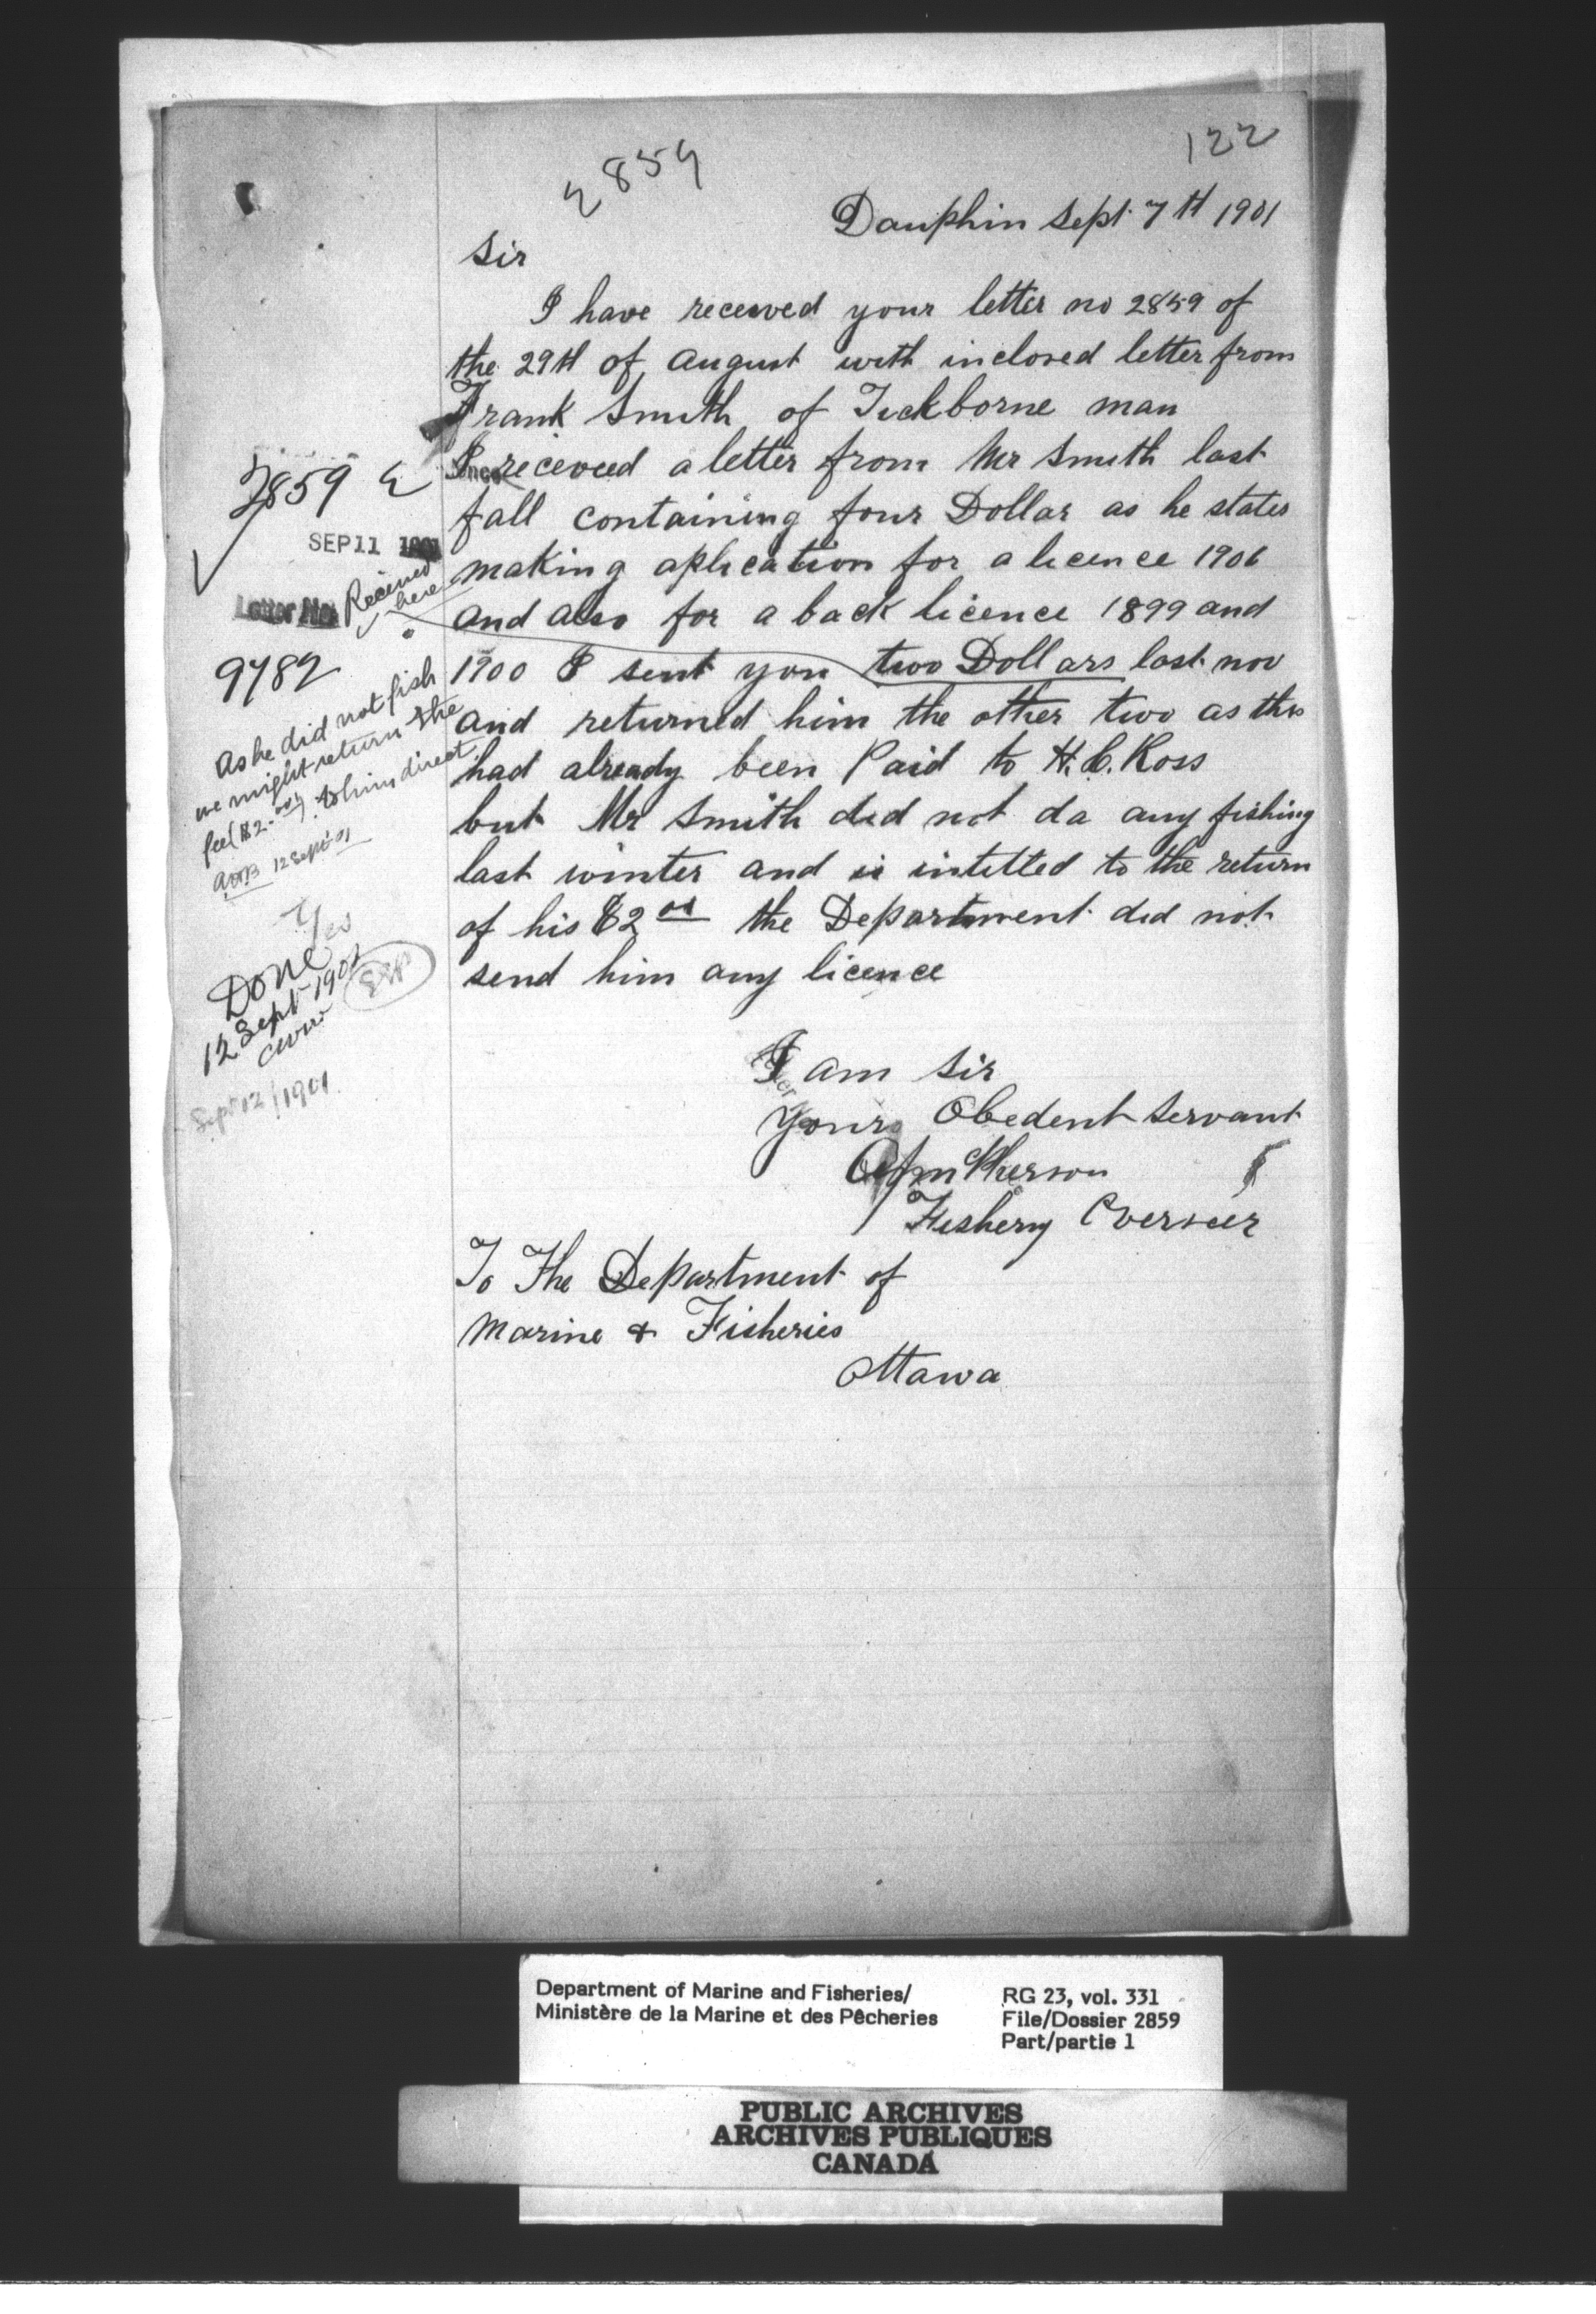 2859
122
Dauphin Sept 7th 1901
Sir
I have received your letter no 2859 of
the 29th of August with inclosed letter from
Frank Smith of Tuckborne man
I received a letter from Mr Smith last
fall containing four Dollar as he states
making aplication for a licence 1906
and also for a back licence 1899 and
1900 I sent you two Dollars last nov
and returned him the other two as this
had already been Paid to H. C. Ross
but Mr Smith did not da any fishing
last winter and is intitled to the return
of his $2 00 the Department did not
send him any licence
I am Sir
Yours Obedent Servant
McPherson
Fishery Overseer
To The Department of
Marine & Fisheries
Ottawa
2859
SEP 11 1901
Letter No.
Received
here
9782
As he did not fish
we might return the
fee ($2.00) to him direct
12 Sept 01
Yes
Done
12 Sept 1901
Sept 12/1901
Department of Marine and Fisheries/
Ministère de la Marine et des Pêcheries
RG 23, vol. 331
File/Dossier 2859
Part/partie 1
PUBLIC ARCHIVES
ARCHIVES PUBLIQUES
CANADA